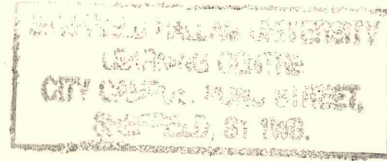 SHEFFIELD HALLAM UNIVERSITY
LEARNING CENTRE
CITY CAMPUS, POND STREET,
SHEFFIELD, S1 1WB.